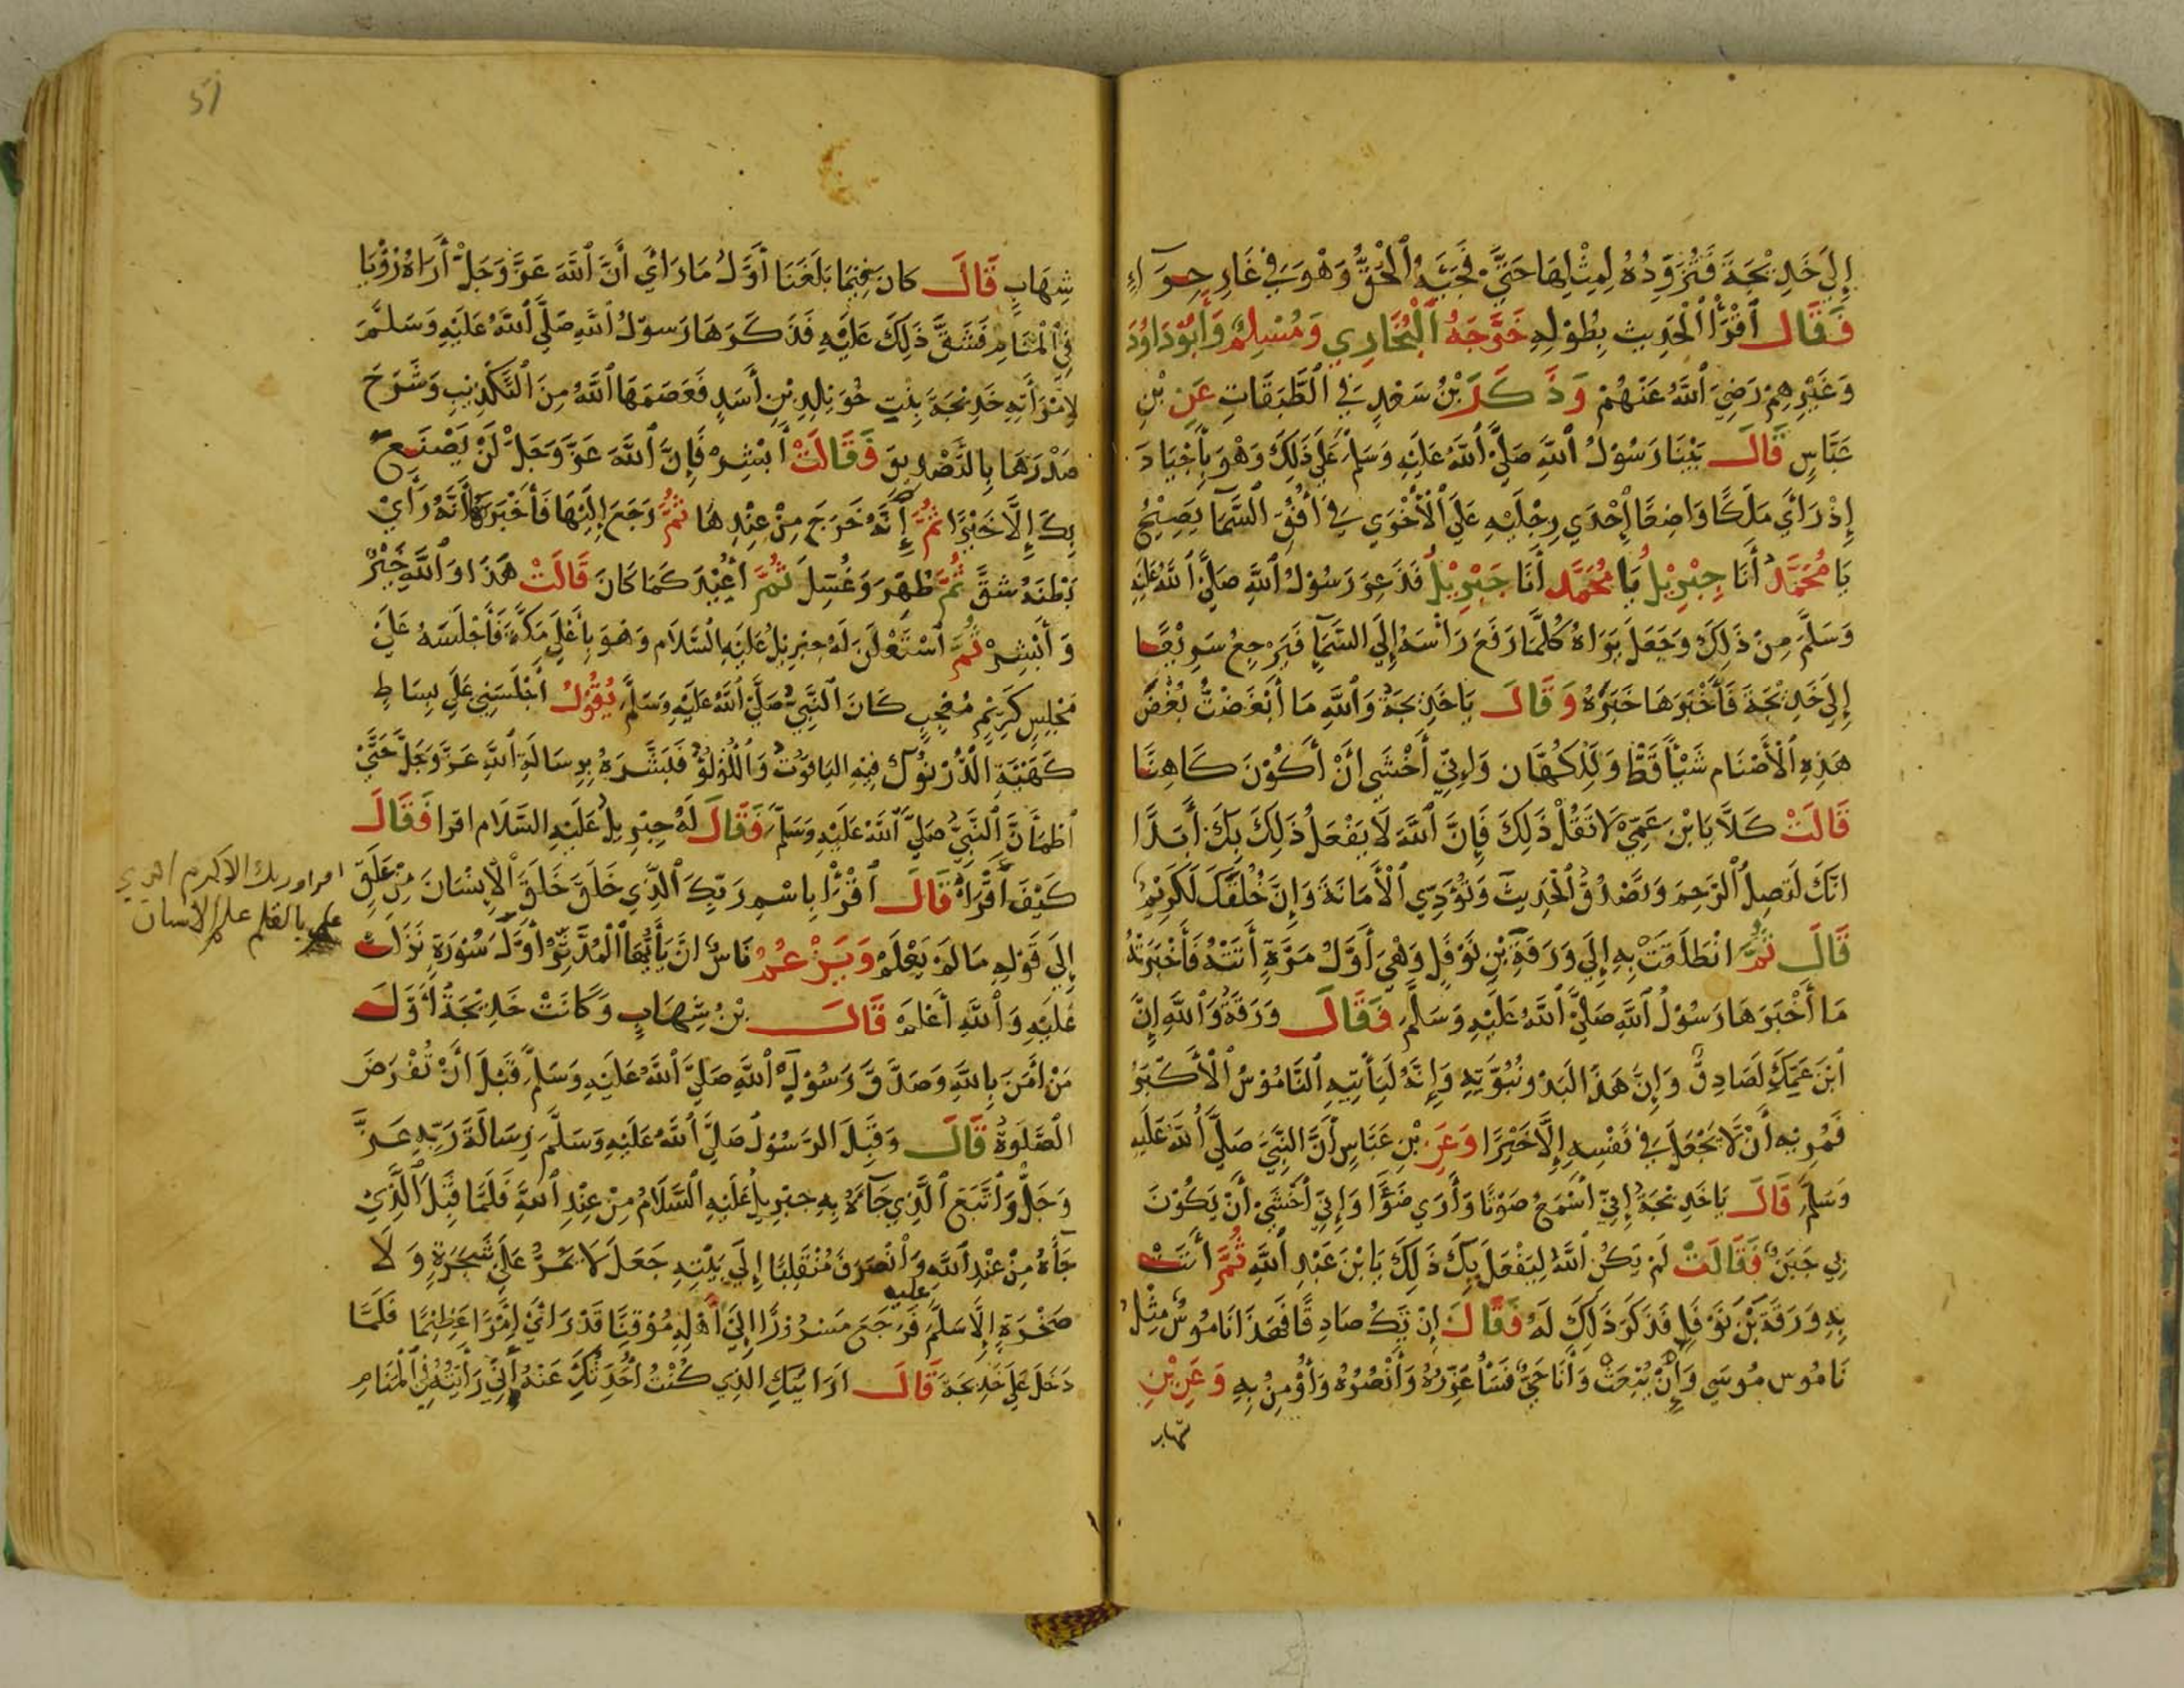 إِلَى خَدِيْجَةَ فَتُزَوِّدُهُ لِمِثْلِهَا حَتَّى فَجِئَهُ ٱلْحَقُّ وَهْوَ فِي غَارِ حِرَآءٍ
فَقَالَ ٱقْرَأْ ٱلْحَدِيث بِطُوْلِهِ خَرَّجَهُ ٱلْبُخَارِي وَمُسْلِمٌ وَأَبُوْ دَاوُدَ
وَغَيْرِهِمْ رَضِيَ ٱللَّهُ عَنْهُمْ وَذَكَرَ بْنُ سَعْدٍ فِي ٱلطَّبَقَاتِ عَنِ بْنِ
عَبَّاسٍ قَالَ بَيْنَا رَسُوْلُ ٱللَّهِ صَلَّى ٱللَّهُ عَلَيْهِ وَسَلَّمَ عَلَى ذَلِكَ وَهْوَ بِأَجْيَادَ
إِذْ رَأَى مَلَكًا وَاضِعًا إِحْدَي رِجْلَيْهِ عَلَى ٱلْأُخْرَي فِي أُفُقِ ٱلسَّمَا يَصِيْحُ
يَا مُحَمَّدُ أَنَا جِبْرِيْلُ يَا مُحَمَّد أَنَا جِبْرِيْلُ فَذَعِرَ رَسُوْلُ ٱللَّهِ صَلَّى ٱللَّهُ عَلَيْهِ
وَسَلَّمَ مِنْ ذَلِكَ وَجَعَلَ يَرَاهُ كُلَّمَا رَفَعَ رَاْسَهُ إِلَى السَّمَآءِ فَيَرْجِعُ سَرِيْعًا
إِلَى خَدِيْجَةَ فَأَخْبَرَهَا خَبَرَهُ وَقَالَ يَا خَدِيْجَةُ وَٱللَّهِ مَا أَبْغَضْتُ بُغْضَ
هَذِهِ ٱلْأَصْنَام شَيْأً قَطُّ وَلَا الكُهَّان وَإِنِّي أَخْشَي أَنْ أَكُوْنَ كَاهِنًا
قَالَتْ كَلَّا يَا بْنَ عَمِّي لَا تَقُلْ ذَلِكَ فَإِنَّ ٱللَّهَ لَا يَفْعَلُ ذَلِكَ بِكَ أَبَدًا
انَّكَ لَتَصِلُ ٱلرَّحِمَ وَتَصْدُقُ ٱلْحَدِيثَ وَتُؤَدِّي ٱلْأَمَانَةَ وَإِنَّ خُلُقَكَ لَكَرِيْمٌ
قَالَ ثُمَّ انْطَلَقَتْ بِهِ إِلَى وَرَقَةِ بْنِ نَوْفَلٍ وَهْيَ أَوَّلُ مَرَّةٍ أَتَتْهُ فَأَخْبَرَتْهُ
مَا أَخْبَرَهَا رَسُوْلُ ٱللَّهِ صَلَّى ٱللَّهُ عَلَيْهِ وَسَلَّمَ فَقَالَ وَرَقَةُ وَٱللَّهِ إِنَّ
ٱبْنَ عَمِّكِ لَصَادِقٌ وَإِنَّ هَذَا لَبَدْو نُبُوَّتِهِ وَإِنَّهُ لَيَأْتِيْهِ ٱلنَّامُوْسُ ٱلْأَكْبَرُ
فَمُرِيْهِ أَنْ لَا يَجْعَلَ فِي نَفْسِهِ إِلَّا خَيْرًا وَعَنِ بْنِ عَبَّاسٍ أَنَّ النَّبِيَّ صَلَّى ٱللَّهُ عَلَيْهِ
وَسَلَّمَ قَالَ يَا خَدِيْجَةُ إِنِّي أَسْمَعُ صَوْتًا وَأَرَي ضَوْأً وَإِنِّي أَخْشَى أَنْ يَكُوْنَ
بِي جَنَنٌ فَقَالَتْ لَمْ يَكُنِ ٱللَّهُ لِيَفْعَلَ بِكَ ذَلِكَ يَا بْنَ عَبْدِ ٱللَّهِ ثُمَّ أَتَتْ
بِهِ وَرَقَةَ بْنَ نَوْفَلٍ فَذَكَرَ ذَلِكَ لَهُ فَقَالَ إِنْ يَكُ صَادِقًا فَهَذَا نَامُوْسٌ مِثْلُ
نَامُوس مُوسَي وَإِنْ يُبْعَث وَأَنَا حَيٌّ فَسَأُعَزِّرُهُ وَأَنْصُرُهُ وَأُؤْمِنُ بِهِ وَعَنِ بْنِ
شهاب
شِهَابٍ قَالَ كانَ فِيْمَا بَلَغَنَا أَوَّلُ مَا رَأَى أَنَّ ٱللَّهَ عَزَّ وَجَلَّ أَرَاهُ رُؤْيَا
فِي ٱلْمَنَامِ فَشَقَّ ذَلِكَ عَلَيْهِ فَذَكَرَهَا رَسوْلُ ٱللَّهِ صَلَّى ٱللَّهُ عَلَيْهِ وَسَلَّمَ
لِامْرَأَتِهِ خَدِيْجَةَ بِنْتِ خُوَيْلِدِ بْنِ أَسَدٍ فَعَصَمَهَا ٱللَّهُ مِنَ ٱلتَّكْذِيْبِ وَشَرَحَ
صَدْرَهَا بِالتَّصْدِيق فَقَالَتْ أَبْشِرْ فَإِنَّ ٱللَّهَ عَزَّ وَجَلَّ لَنْ يَصْنَعَ
بِكَ إِلَّا خَيْرًا ثُمَّ إِنَّهُ خَرَجَ مِنْ عِنْدِهَا ثُمَّ رَجَعَ إِلَيْهَا فَأَخْبَرَهَا أَنَّهُ رَأَي
بَطْنَهُ شقَّ ثُمَّ طُهِّرَ وَغُسِلَ ثُمَّ أُعِيْدَ كَمَا كَانَ قَالَتْ هَذَا وَٱللَّهِ خَيْرٌ
وَأَبْشِرْ ثُمَّ ٱسْتَعْلَنَ لَهُ جِبْرِيْلُ عَلَيْهِ ٱلسَّلَام وَهوَ بِأَعْلَى مَكَّةَ فَأَجْلَسَهُ عَلَى
مَجْلِسٍ كَرِيْمٍ مُعْجِبٍ كَانَ ٱلنَّبِيُّ صَلَّى ٱللَّهُ عَلَيْهِ وَسَلَّمَ يَقُوْلُ أَجْلَسَنِي عَلَى بِسَاطٍ
كَهَيْئَةِ الدُّرْنُوْك فِيْهِ اليَاقُوْتُ وَٱللُّؤْلُؤُ فَبَشَّرَهُ بِرِسَالَةِ ٱللَّهِ عَزَّ وَجَلَّ حَتَّى
ٱطْمَأَنَّ ٱلنَّبِيُّ صَلَّى ٱللَّهُ عَلَيْهِ وَسَلَّمَ فَقَالَ لَهُ جِبْرِيلُ عَلَيْهِ السَّلَام اقرا فَقَالَ
كَيْفَ أَقْرَاُ قَالَ ٱقْرَأْ بِاسْمِ رَبِّكَ ٱلَّذِي خَلَقَ خَلَقَ ٱلْإِنْسَانَ مِنْ عَلَقٍ
اقرا وربك الاكرم الذي
علم بالقلم علم الانسان
إِلَى قَوْلِهِ مَا لَمْ يَعْلَمْ وَيَزْعُمُ نَاسٌ انَّ يَأَيُّهَا ٱلْمُدَّثِّرُ أَوَّلَ سُوْرَةٍ نَزَلَتْ
عَلَيْهِ وَٱللَّهُ أَعْلَمَ قَالَ بْنُ شِهَابٍ وَكَانَتْ خَدِيْجَةُ أَوَّلَ
مَنْ اٰمَنَ بِاللَّهِ وَصَدَّقَ رَسُوْلَ ٱللَّهِ صَلَّى ٱللَّهُ عَلَيْهِ وَسَلَّمَ قَبْلَ أَنْ تُفْرَضَ
الصَّلَوةُ قَالَ وَقَبِلَ الرَّسُوْلُ صَلَّى ٱللَّهُ عَلَيْهِ وَسَلَّمَ رِسَالَةَ رَبِّهِ عَزَّ
وَجَلَّ وَٱتَّبَعَ ٱلَّذِي جَآءَهُ بِهِ جِبْرِيلُ عَلَيْهِ ٱلسَّلَامُ مِنْ عِنْدِ ٱللَّهِ فَلَمَّا قَبِلَ ٱلَّذِيْ
جَآءَهُ مِنْ عْنْدِ ٱللَّهِ وَٱنْصَرَفَ مُنْقَلِبًا إِلَى بَيْتِهِ جَعَلَ لَا يَمُرُّ عَلَى شَجَرَةٍ وَلَا
صَخْرَةٍ إِلَّا سَلَّمَ عليه فَرَجَعَ مَسْرُوْرًا إِلَى أَهْلِهِ مُوْقِنًا قَدْ رَأَى أَمْرًا عَظِيْمًا فَلَمَّا
دَخَلَ عَلَى خَدِيْجَةَ قَالَ ارَايْتكِ الذِي كُنْتُ أُحَدِّثُكِ عَنْهُ أَنِّي رَأَيْتُهُ فِي ٱلْمَنَامِ